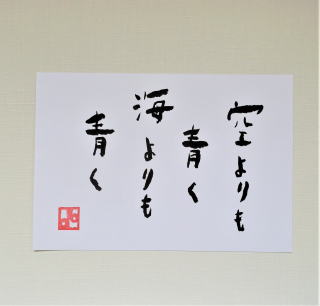 空よりも
青く
海よりも
青く